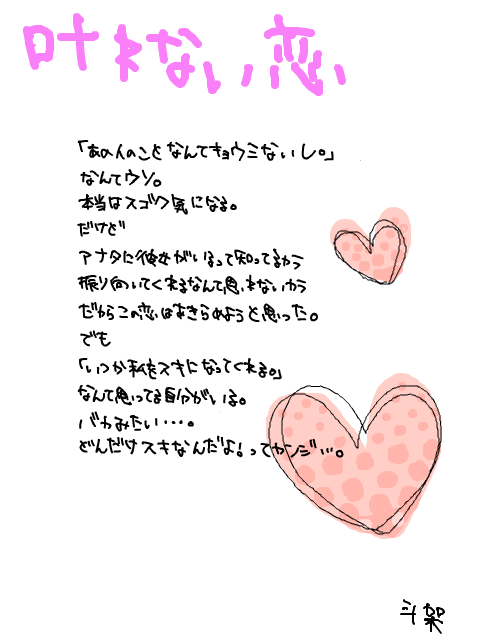 叶わない恋
「あの人のことなんてキョウミないし。」
なんてウソ。
本当はスゴク気になる。
だけど
アナタに彼女がいるって知ってるから
振り向いてくれるなんて思わないから
だからこの恋はあきらめようと思った。
でも
「いつか私をスキになってくれる。」
なんて思ってる自分がいる。
バカみたい・・・。
どんだけスキなんだよ!ってカンジ・・・。
斗架